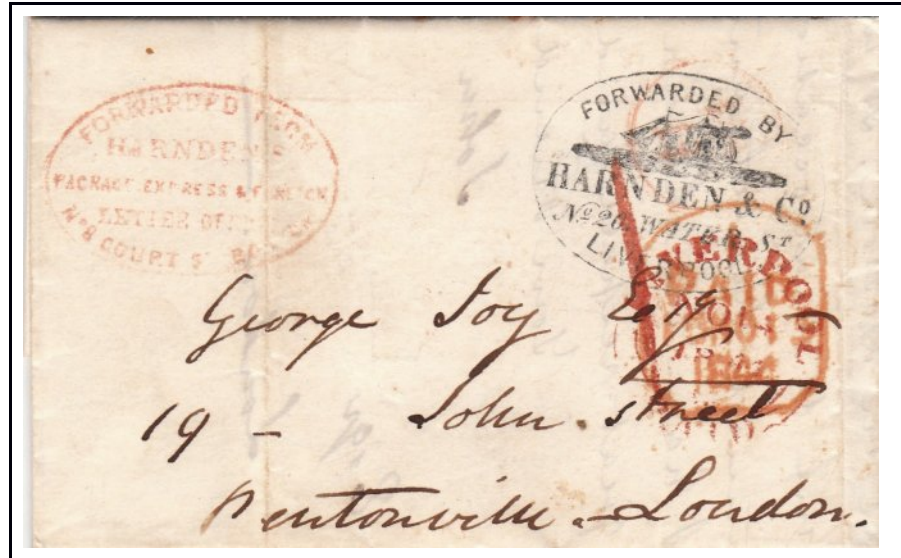 FORWARDED FROM
HARNDEN'S
PACKAGE EXPRESS & FOREIGN
LETTER OFFICE
No 8 COURT St BOSTON
FORWARDED BY
HARNDEN & Co
No 20. WATER St
LIVERPOOL
LIVERPOOL
PAID
1844
George Joy Esqr
19 - John. street
Pentonville. - London.